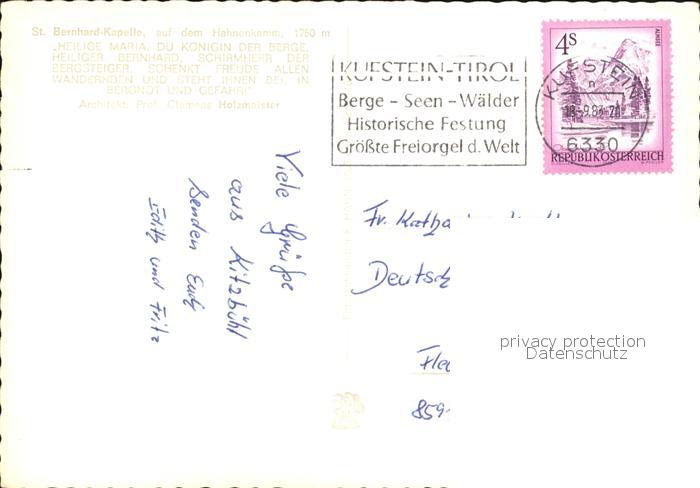 St. Bernhard-Kapelle, auf dem Hahnenkamm, 1750 m
„HEILIGE MARIA, DU KÖNIGIN DER BERGE,
HEILIGER BERNHARD, SCHIRMHERR DER
BERGSTEIGER, SCHENKT FREUDE ALLEN
WANDERNDEN UND STEHT IHNEN BEI IN
BERGNOT UND GEFAHR!"
Architekt: Prof. Clemens Holzmeister
KUFSTEIN-TIROL
Berge - Seen - Wälder
Historische Festung
Größte Freiorgel d. Welt
4S
ALMSEE
KUFSTEIN
6330
REPUBLIK ÖSTERREICH
Viele Grüße
aus Kitzbühl
senden Euch
Edith und Fritz
Fr. Katha
Deutsc
859
privacy protection
Datenschutz